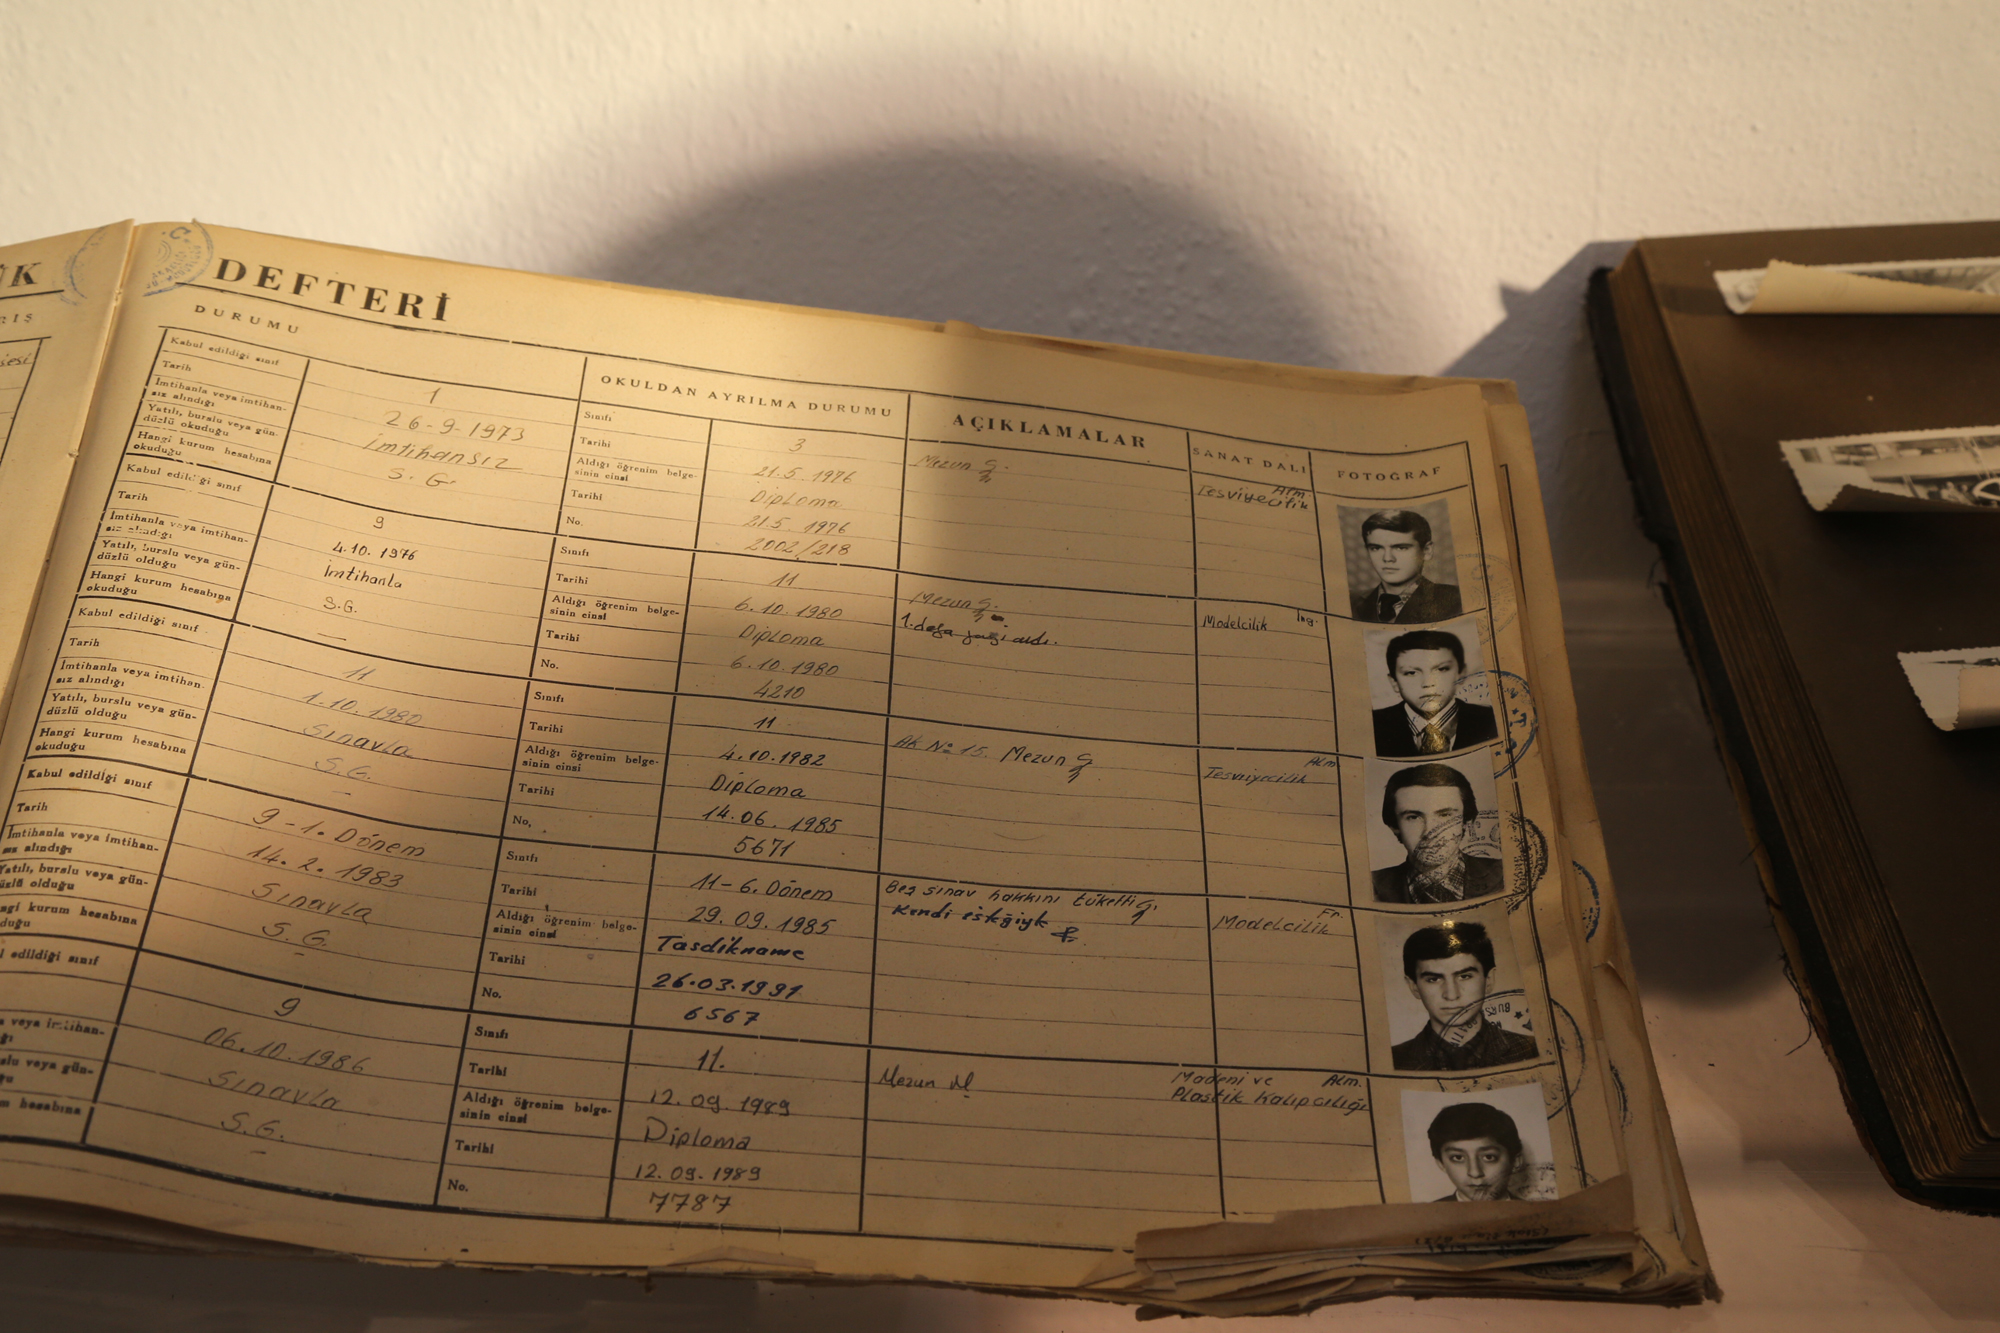 DEFTERİ
DURUMU
OKULDAN AYRILMA DURUMU
AÇIKLAMALAR
SANAT DALI
FOTOĞRAF
Kabul edildiği sınıf
1
Tarih
26-9-1973
İmtihanla veya imtihan-
sız alındığı
İmtihansız
Yatılı, burslu veya gün-
düzlü okuduğu
S.G.
Hangi kurum hesabına
okuduğu
Sınıfı
3
Tarihi
21.5.1976
Aldığı öğrenim belge-
sinin cinsi
Diploma
Tarihi
21.5.1976
No.
2002/218
Mezun
Alm.
Tesviyecilik
Kabul edildiği sınıf
9
Tarih
4.10.1976
İmtihanla veya imtihan-
sız alındığı
İmtihanla
Yatılı, burslu veya gün-
düzlü olduğu
S.G.
Hangi kurum hesabına
okuduğu
Sınıfı
11
Tarihi
6.10.1980
Aldığı öğrenim belge-
sinin cinsi
Diploma
Tarihi
6.10.1980
No.
4210
Mezun
İng.
Modelcilik
Kabul edildiği sınıf
11
Tarih
1.10.1980
İmtihanla veya imtihan-
sız alındığı
Sınavla
Yatılı, burslu veya gün-
düzlü olduğu
S.G.
Hangi kurum hesabına
okuduğu
Sınıfı
11
Tarihi
4.10.1982
Aldığı öğrenim belge-
sinin cinsi
Diploma
Tarihi
14.06.1985
No.
5671
Ak No 15. Mezun
Alm
Tesviyecilik
Kabul edildiği sınıf
9-1. Dönem
Tarih
14.2.1983
İmtihanla veya imtihan-
sız alındığı
Sınavla
Yatılı, burslu veya gün-
düzlü olduğu
S.G.
hesabına
Sınıfı
11-6. Dönem
Tarihi
29.09.1985
Aldığı öğrenim belge-
sinin cinsi
Tasdikname
Tarihi
26.03.1991
No.
6567
Beş sınav hakkını tüketti
Kendi isteğiyle
Fr.
Modelcilik
edildiği sınıf
9
06.10.1986
veya imtihan-
Sınavla
veya gün-
S.G.
hesabına
Sınıfı
11.
Tarihi
12.09.1989
Aldığı öğrenim belge-
sinin cinsi
Diploma
Tarihi
12.09.1989
No.
7787
Mezun
Madeni ve Alm.
Plastik Kalıpcılığı